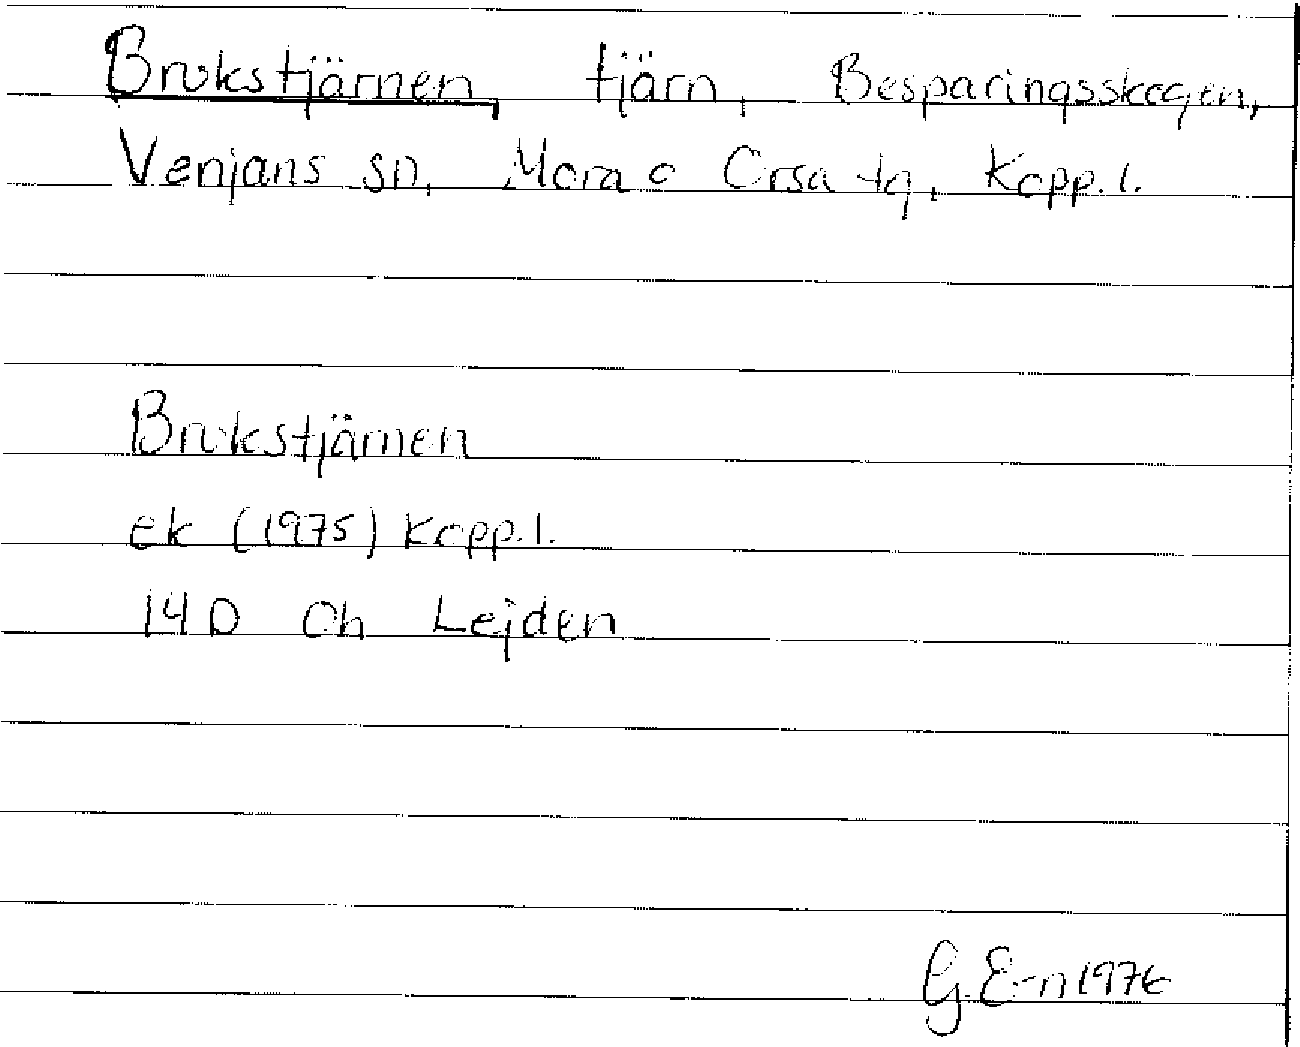 Brukstjärnen, tjärn, Besparingsskogen,
Venjans sn, Mora o Orsa tg, Kopp. l.
Brukstjärnen
ek (1975) Kopp. l.
14 D 0h Lejden
G. E-n 1976